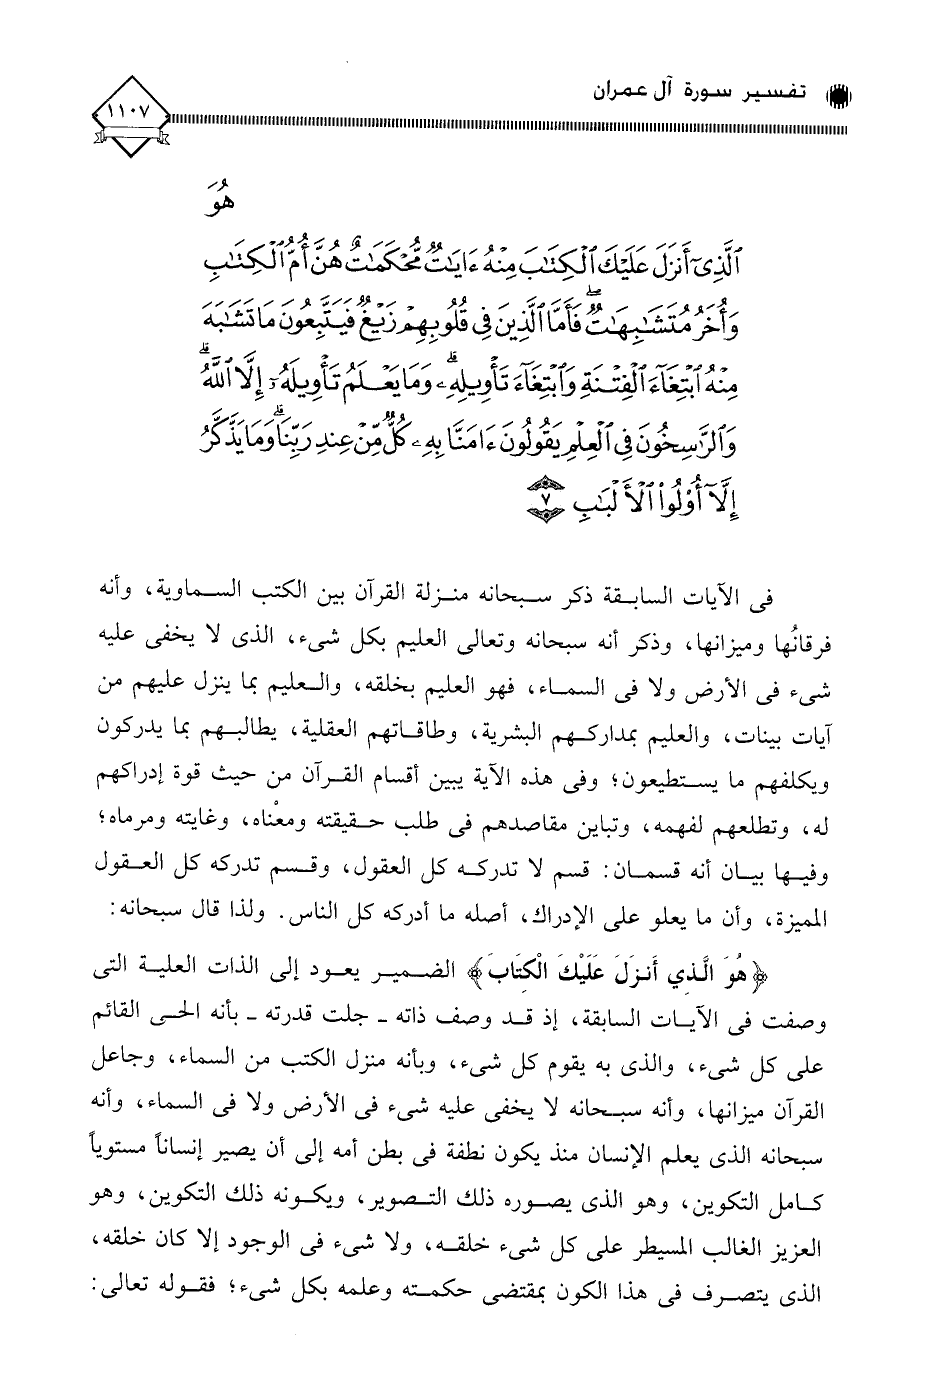 تفسير سورة آل عمران
١١٠٧
هُوَ
ٱلَّذِىٓ أَنزَلَ عَلَيْكَ ٱلْكِتَٰبَ مِنْهُ ءَايَٰتٌ مُّحْكَمَٰتٌ هُنَّ أُمُّ ٱلْكِتَٰبِ
وَأُخَرُ مُتَشَٰبِهَٰتٌ ۖ فَأَمَّا ٱلَّذِينَ فِى قُلُوبِهِمْ زَيْغٌ فَيَتَّبِعُونَ مَا تَشَٰبَهَ
مِنْهُ ٱبْتِغَآءَ ٱلْفِتْنَةِ وَٱبْتِغَآءَ تَأْوِيلِهِۦ ۗ وَمَا يَعْلَمُ تَأْوِيلَهُۥٓ إِلَّا ٱللَّهُ ۗ
وَٱلرَّٰسِخُونَ فِى ٱلْعِلْمِ يَقُولُونَ ءَامَنَّا بِهِۦ كُلٌّ مِّنْ عِندِ رَبِّنَا ۗ وَمَا يَذَّكَّرُ
إِلَّآ أُو۟لُوا۟ ٱلْأَلْبَٰبِ ٧
فى الآيات السابقة ذكر سبحانه منزلة القرآن بين الكتب السماوية، وأنه
فرقانُها وميزانها، وذكر أنه سبحانه وتعالى العليم بكل شىء، الذى لا يخفى عليه
شىء فى الأرض ولا فى السماء، فهو العليم بخلقه، والعليم بما ينزل عليهم من
آيات بينات، والعليم بمداركهم البشرية، وطاقاتهم العقلية، يطالبهم بما يدركون
ويكلفهم ما يستطيعون؛ وفى هذه الآية يبين أقسام القرآن من حيث قوة إدراكهم
له، وتطلعهم لفهمه، وتباين مقاصدهم فى طلب حقيقته ومعْناه، وغايته ومرماه؛
وفيها بيان أنه قسمان: قسم لا تدركه كل العقول، وقسم تدركه كل العقول
المميزة، وأن ما يعلو على الإدراك، أصله ما أدركه كل الناس. ولذا قال سبحانه:
﴿هُوَ الَّذِي أَنزَلَ عَلَيْكَ الْكِتَابَ﴾ الضمير يعود إلى الذات العلية التى
وصفت فى الآيات السابقة، إذ قد وصف ذاته ـ جلت قدرته ـ بأنه الحى القائم
على كل شىء، والذى به يقوم كل شىء، وبأنه منزل الكتب من السماء، وجاعل
القرآن ميزانها، وأنه سبحانه لا يخفى عليه شىء فى الأرض ولا فى السماء، وأنه
سبحانه الذى يعلم الإنسان منذ يكون نطفة فى بطن أمه إلى أن يصير إنساناً مستوياً
كامل التكوين، وهو الذى يصوره ذلك التصوير، ويكونه ذلك التكوين، وهو
العزيز الغالب المسيطر على كل شىء خلقه، ولا شىء فى الوجود إلا كان خلقه،
الذى يتصرف فى هذا الكون بمقتضى حكمته وعلمه بكل شىء؛ فقوله تعالى: